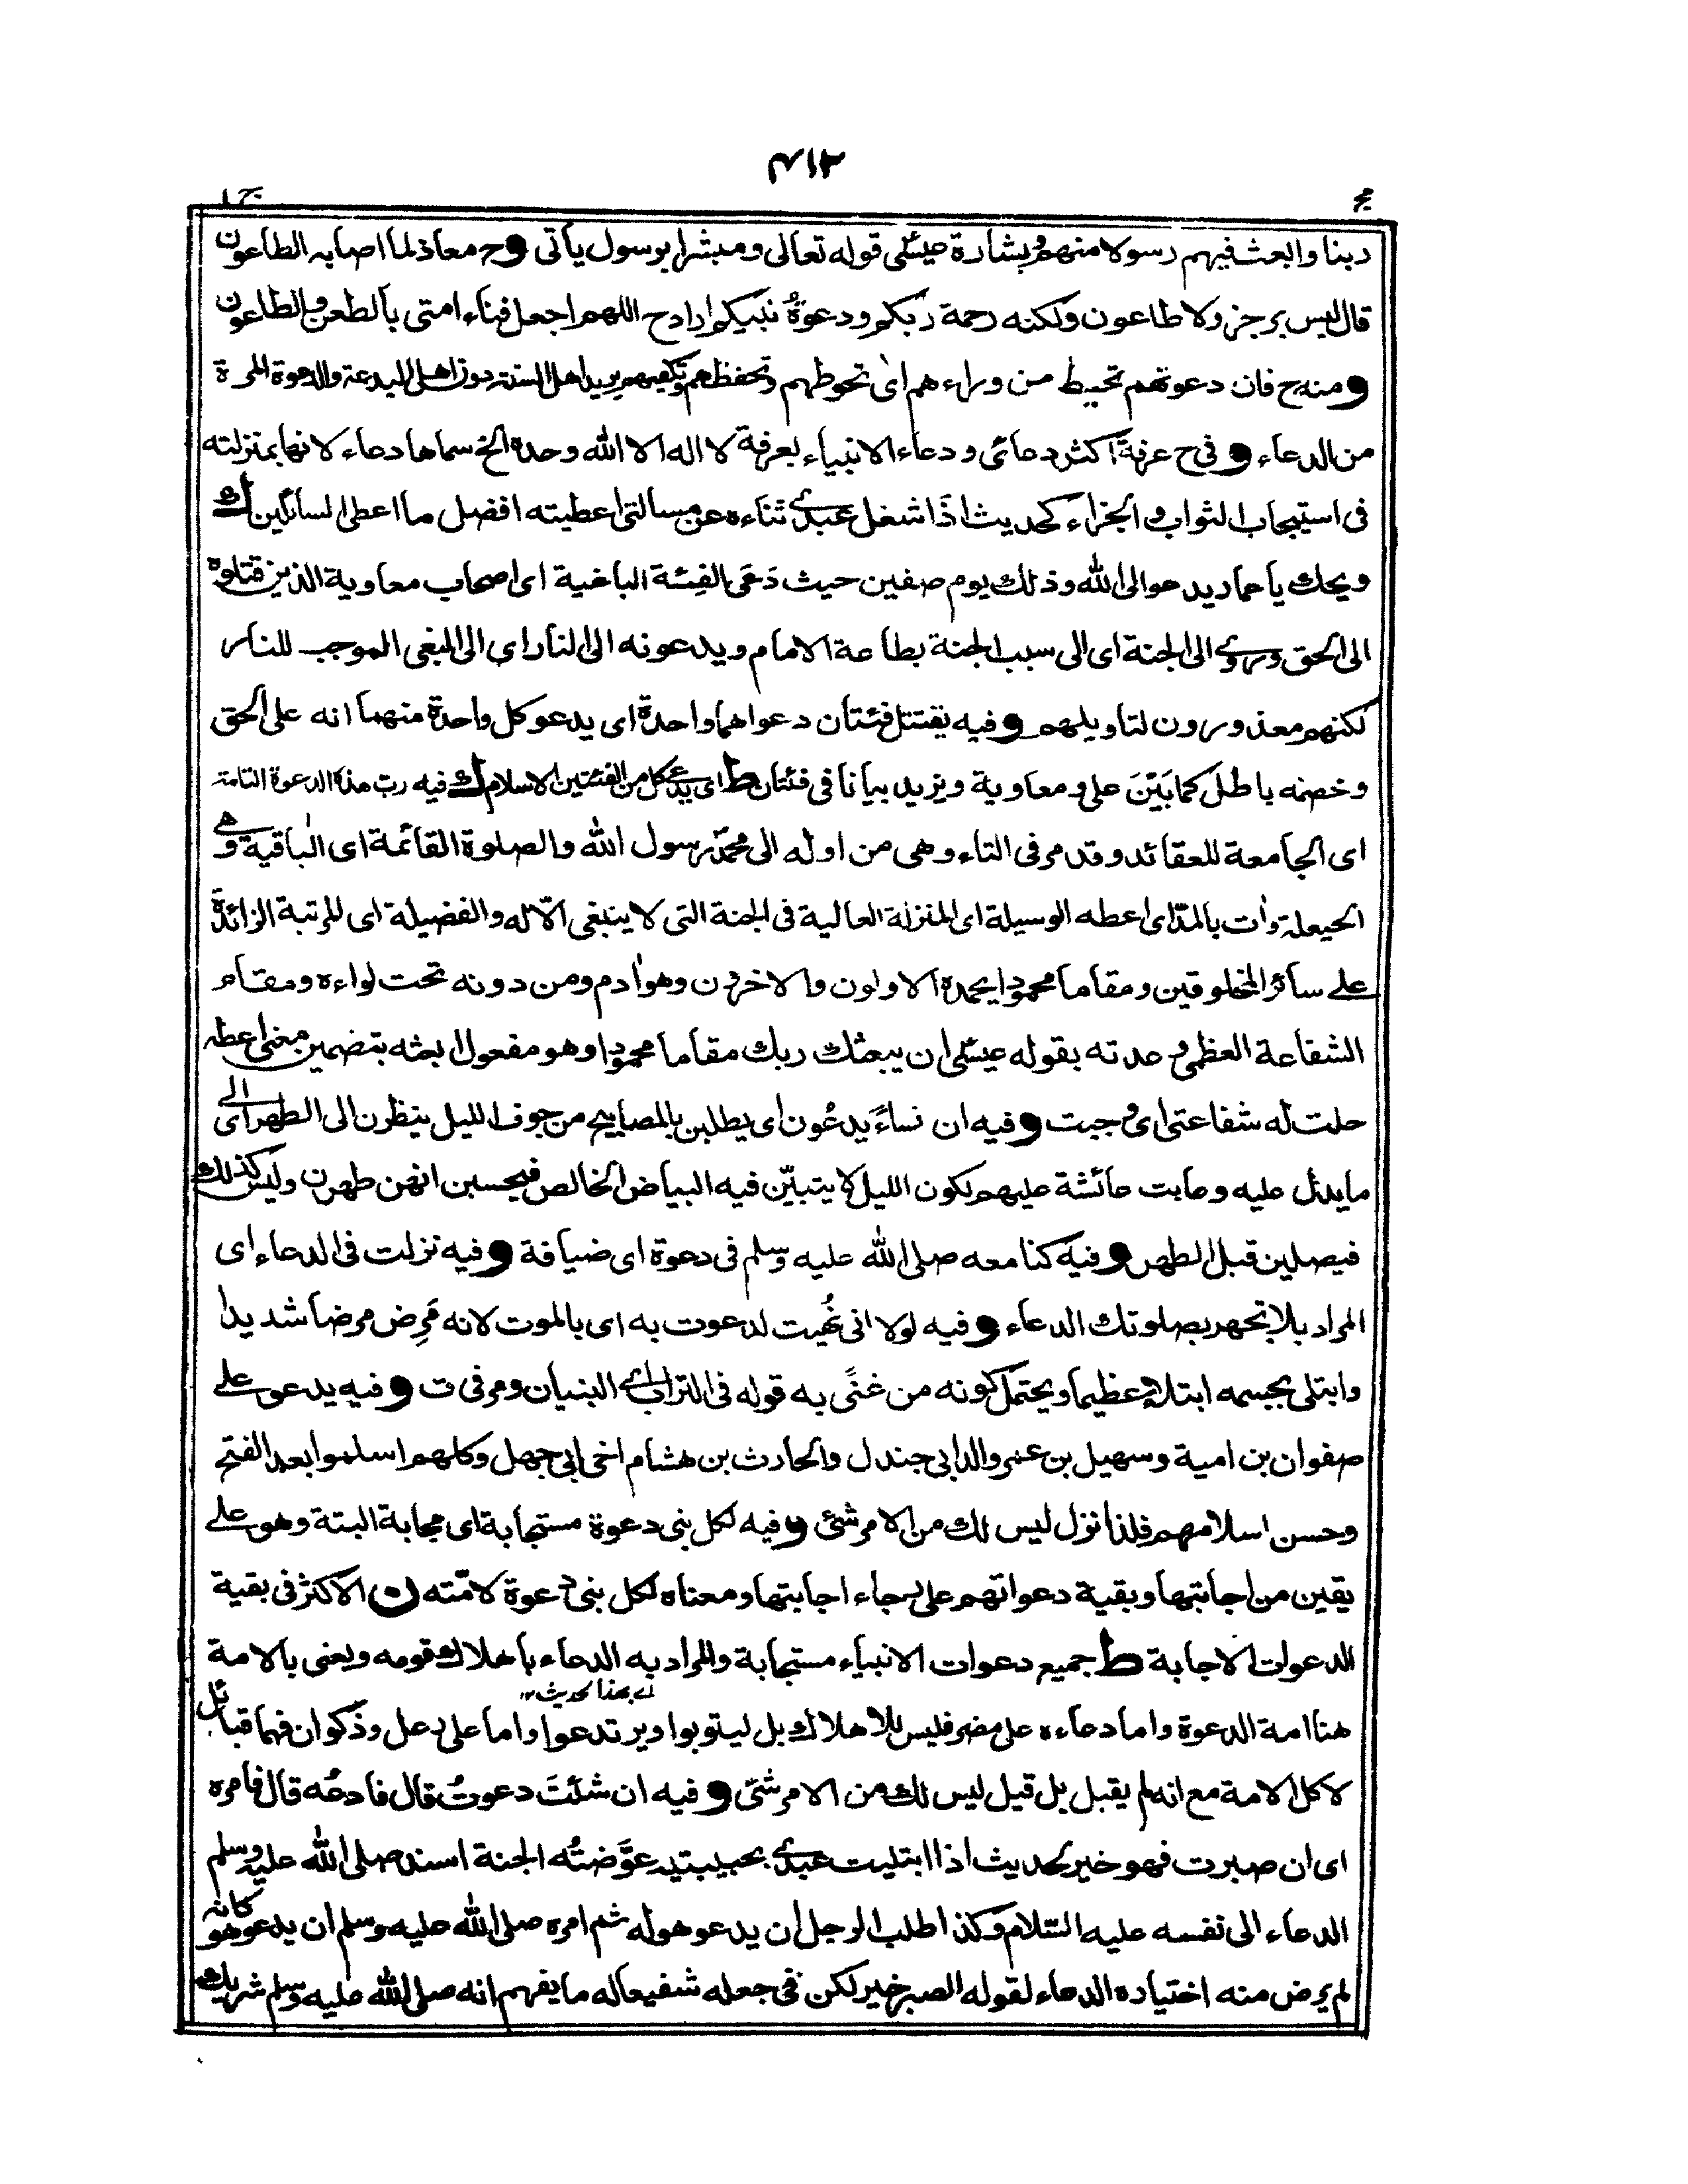 ٤١٢
مج ج١
ربنا وابعث فيهم رسولا منهم وبشارة عيسى قوله تعالى ومبشرا برسول يأتى وح معاذ لما اصابه الطاعون
قال ليس برجز ولا طاعون ولكنه رحمة ربكم ودعوة نبيكم اراد ح اللهم اجعل فناء امتى بالطعن والطاعون
ومنه ح فان دعوتهم تحيط من وراءهم اى تحوطهم وتحفظهم وتكفيهم يريد اهل السنة دون اهل البدعة والدعوة المرة
من الدعاء وفى ح عرفة اكثر دعائى ودعاء الانبياء بعرفة لا اله الا الله وحده الخ سماها دعاء لانها بمنزلته
فى استيجاب الثواب والجزاء كحديث اذا شغل عبدى ثناءه عن مسألتى اعطيته افضل ما اعطى السائلين ك
ويحك يا عمار يدعو الى الله وذلك يوم صفين حيث دَعَى الفئة الباغية اى اصحاب معاوية الذين قتلوه
الى الحق وروى الى الجنة اى الى سبب الجنة بطاعة الامام ويدعونه الى النار اى الى البغى الموجب للنار
لكنهم معذورون لتاويلهم وفيه يقتتل فئتان دعواهما واحدة اى يدعو كل واحدة منهما انه على الحق
وخصمه باطل كما بَيَّنَ على ومعاوية ويزيد بيانا فى فئتان ط اى يدعى كل من الفئتين الاسلام ك فيه رب هذه الدعوة التامة
اى الجامعة للعقائد وقد مر فى التاء وهى من اوله الى محمد رسول الله والصلوة القائمة اى الباقية وهى
الحيعلة وات بالمد اى اعطه الوسيلة اى المنزلة العالية فى الجنة التى لا ينبغى الا له والفضيلة اى المرتبة الزائدة
على سائر المخلوقين ومقاما محمودا يحمده الاولون والاخرون وهو ادم ومن دونه تحت لواءه ومقام
الشفاعة العظمى وعدته بقوله عسى ان يبعثك ربك مقاما محمودا وهو مفعول ابعثه بتضمين معنى اعطه
حلت له شفاعتى اى وجبت وفيه ان نساءً يدعُون اى يطلبن بالمصابيح من جوف الليل ينظرن الى الطهر اى الى
ما يدل عليه وعابت عائشة عليهم لكون الليل لا يتبيّن فيه البياض الخالص فيحسبن انهن طهرن وليس كذلك
فيصلين قبل الطهر وفيه كنا معه صلى الله عليه وسلم فى دعوة اى ضيافة وفيه نزلت فى الدعاء اى
المراد بلا تجهر بصلوتك الدعاء وفيه لولا انى نُهيت لدعوت به اى بالموت لانه مَرِض مرضا شديدا
وابتلى بجسمه ابتلاء عظيما ويحتمل كونه من غنًى به قوله فى التراب اى البنيان ومر فى ت وفيه يدعو على
صفوان بن امية وسهيل بن عمرو والد ابى جندل والحارث بن هشام اخى ابى جهل وكلهم اسلموا بعد الفتح
وحسن اسلامهم فلذا نزل ليس لك من الامر شئ وفيه لكل نبى دعوة مستجابة اى مجابة البتة وهو على
يقين من اجابتها وبقية دعواتهم على رجاء اجابتها ومعناه لكل نبى دعوة لامّته ن الاكثر فى بقية
الدعوات الاجابة ط جميع دعوات الانبياء مستجابة والمراد به الدعاء باهلاك قومه ويعنى بالامة
اے بهذا الحديث ١٢
هنا امة الدعوة واما دعاءه على مضر فليس للاهلاك بل ليتوبوا ويرتدعوا واما على رعل وذكوان فهما قبائل
لا كل الامة مع انه لم يقبل بل قيل ليس لك من الامر شئ وفيه ان شئتَ دعوتُ قال فادعُه قال فامره
اى ان صبرت فهو خير كحديث اذا ابتليت عبدى بحبيبتيه عوَّضتُه الجنة اسند صلى الله عليه وسلم
الدعاء الى نفسه عليه السلام وكذا طلب الرجل ان يدعو هو له ثم امره صلى الله عليه وسلم ان يدعو هو كانه
لم يرض منه اختياره الدعاء لقوله الصبر خير لكن فى جعله شفيعا له ما يفهم انه صلى الله عليه وسلم شريك